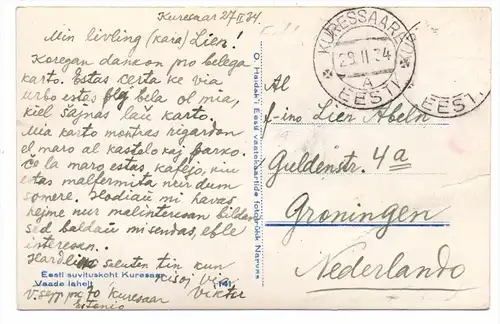 Kuresaar 27/II 34.
Min livling (kara) Lien!
Koregan dankon pro belega
karto. Estas certa ke via
urbo estas pli bila ol mia,
kiel ŝajnas laŭ karto.
Mia karto montras rigardon
el maro al kastelo kaj parko.
Ĉe la maro estas kafejo, kiu
estas malfermita nur dum
somere. Hodiaŭ mi havas
hejme nur malinteresan bildon
sed baldaŭ mi sendas, eble
interesan..
saluton kun
kisoj via
Viktor
Kuresaar
Estonio
Eesti suvituskoht Kuresaar
Vaade lahelt
(14)
O. Haidak'i Eesti vaatekaartide fototrükk Narvas
KURESSAARE
28.II.34
A
EESTI
EESTI
Al
f-ino Lien Abeln
Guldenstr. 4a
Groningen
Nederlando